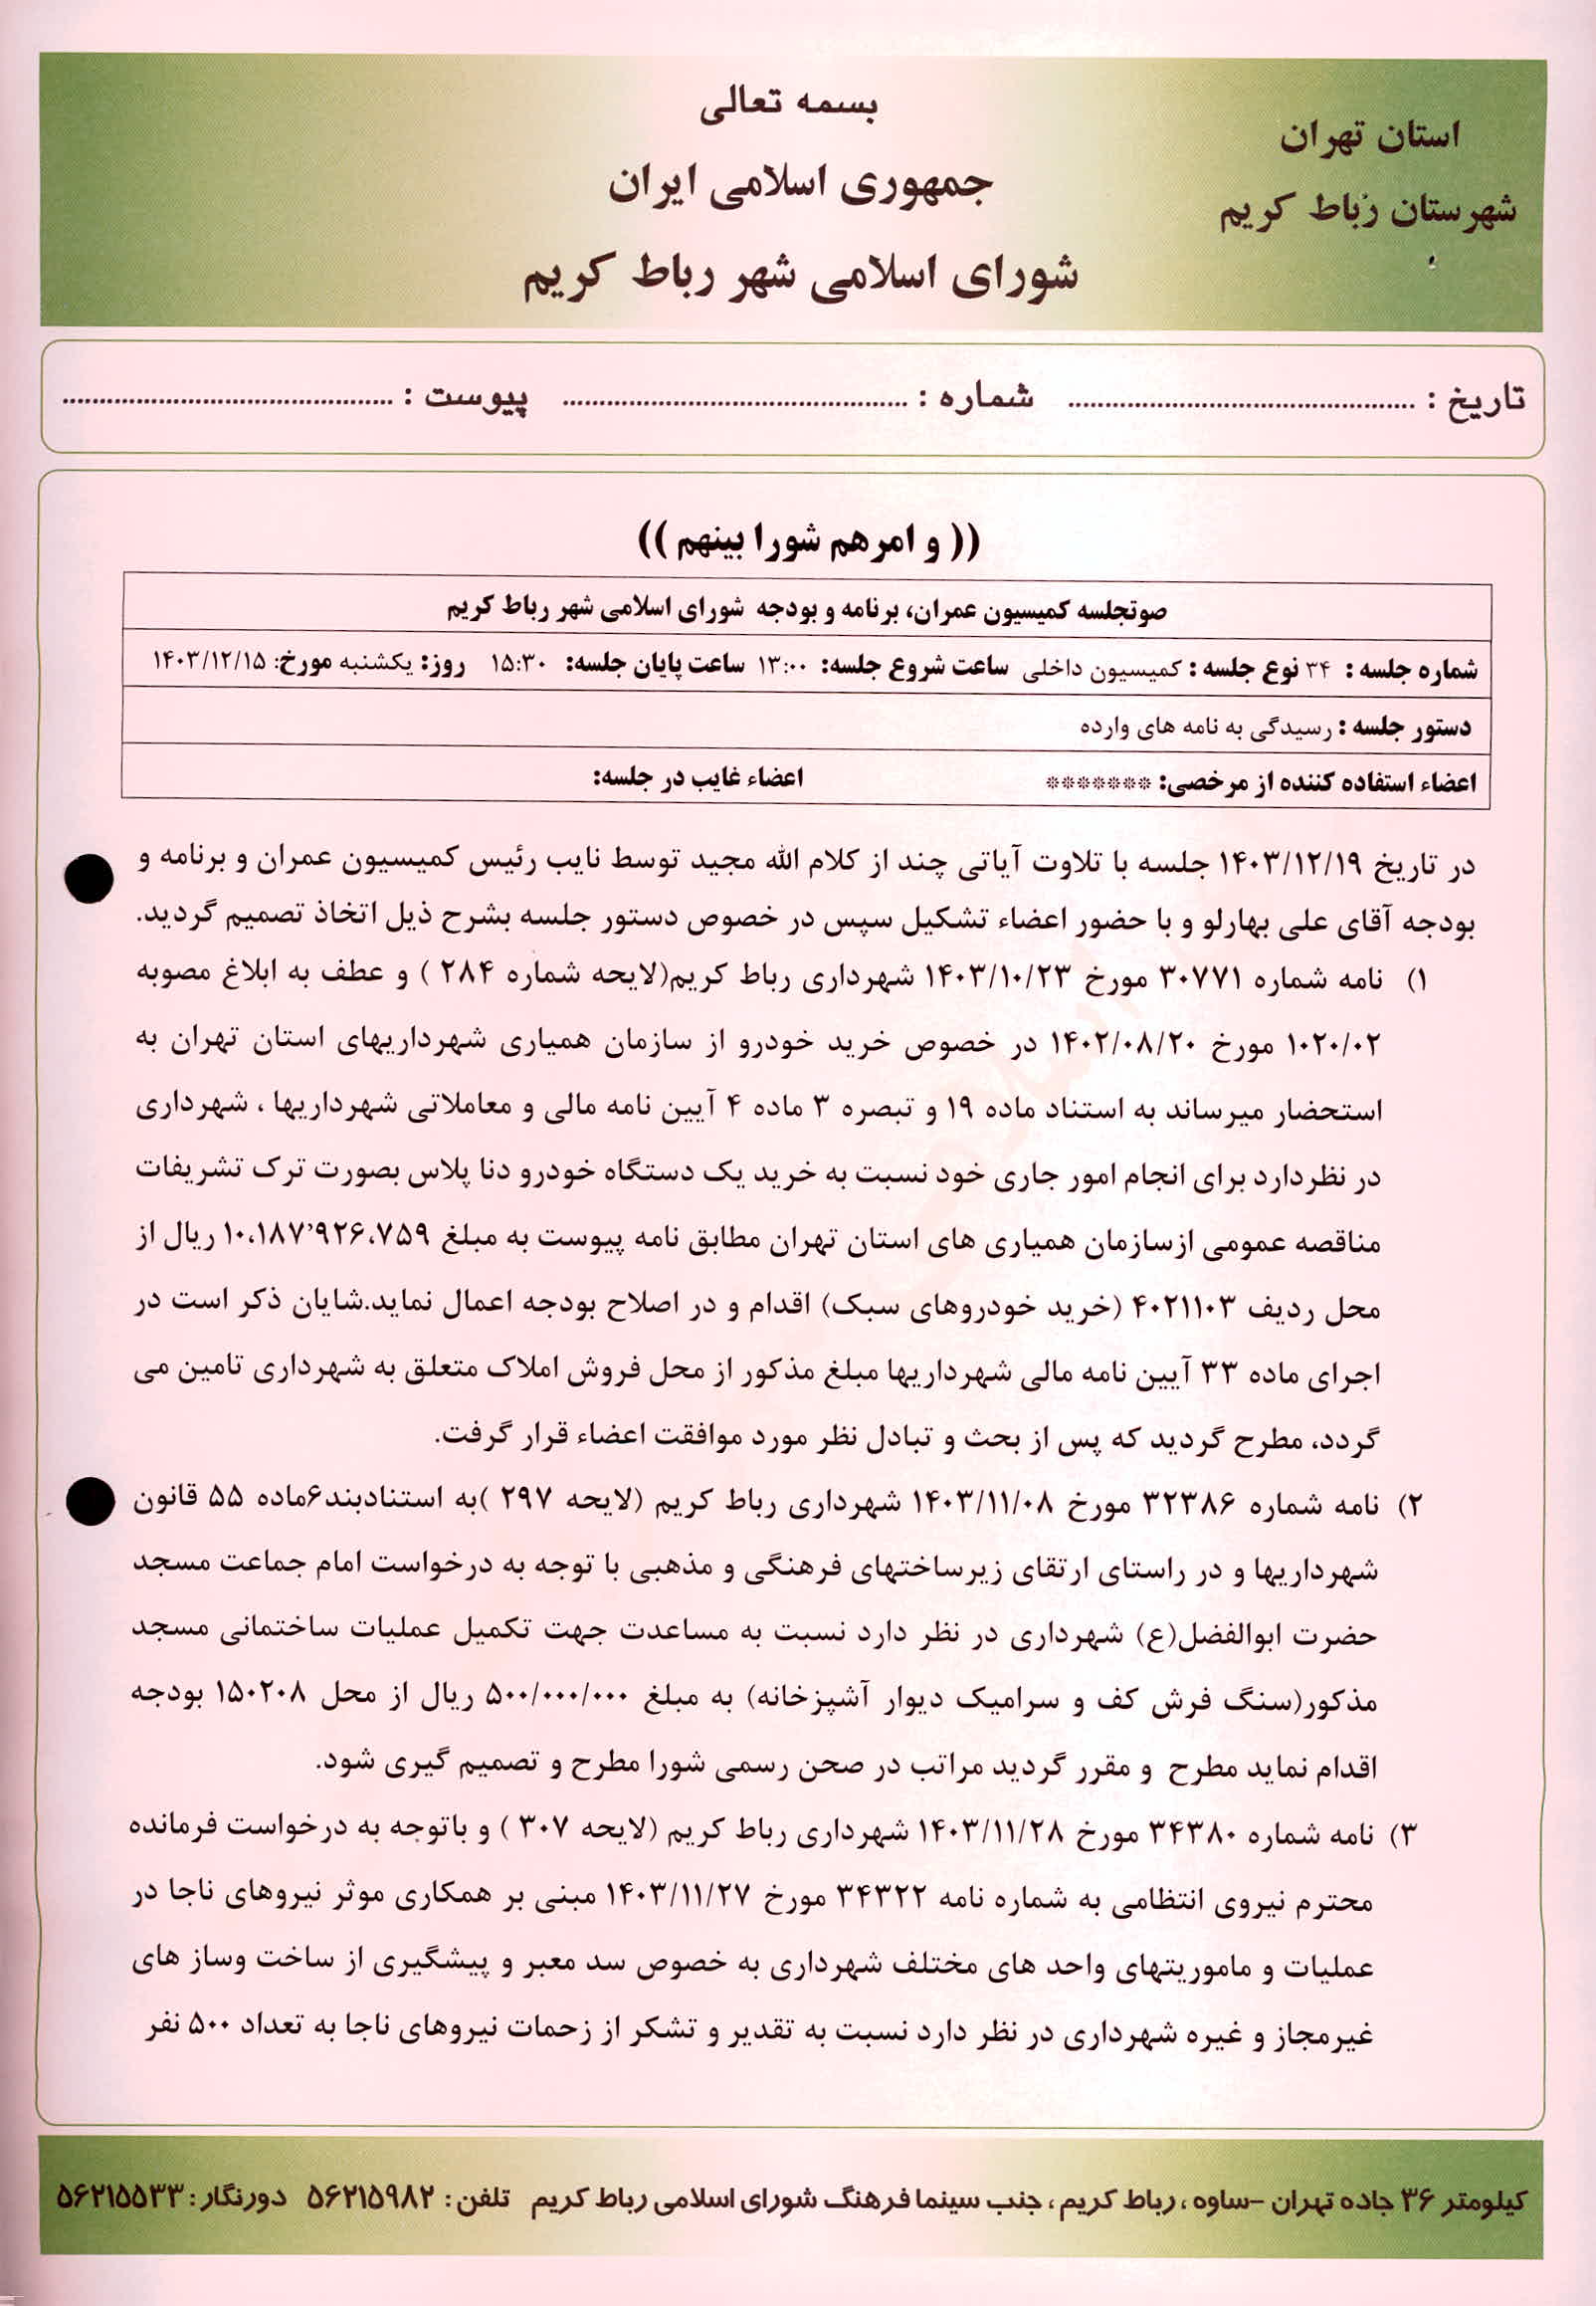 بسمه تعالی
جمهوری اسلامی ایران
شورای اسلامی شهر رباط کریم
استان تهران
شهرستان رباط کریم
تاریخ : ............ شماره : ............ پیوست : ............
(( و امرهم شورا بینهم ))
صوتجلسه کمیسیون عمران، برنامه و بودجه شورای اسلامی شهر رباط کریم
شماره جلسه : ۳۴ نوع جلسه : کمیسیون داخلی ساعت شروع جلسه: ۱۳:۰۰ ساعت پایان جلسه: ۱۵:۳۰ روز: یکشنبه مورخ: ۱۴۰۳/۱۲/۱۵
دستور جلسه : رسیدگی به نامه های وارده
اعضاء استفاده کننده از مرخصی: ******* اعضاء غایب در جلسه:
در تاریخ ۱۴۰۳/۱۲/۱۹ جلسه با تلاوت آیاتی چند از کلام الله مجید توسط نایب رئیس کمیسیون عمران و برنامه و
بودجه آقای علی بهارلو و با حضور اعضاء تشکیل سپس در خصوص دستور جلسه بشرح ذیل اتخاذ تصمیم گردید.
۱) نامه شماره ۳۰۷۷۱ مورخ ۱۴۰۳/۱۰/۲۳ شهرداری رباط کریم(لایحه شماره ۲۸۴ ) و عطف به ابلاغ مصوبه
۱۰۲۰/۰۲ مورخ ۱۴۰۲/۰۸/۲۰ در خصوص خرید خودرو از سازمان همیاری شهرداریهای استان تهران به
استحضار میرساند به استناد ماده ۱۹ و تبصره ۳ ماده ۴ آیین نامه مالی و معاملاتی شهرداریها ، شهرداری
در نظردارد برای انجام امور جاری خود نسبت به خرید یک دستگاه خودرو دنا پلاس بصورت ترک تشریفات
مناقصه عمومی ازسازمان همیاری های استان تهران مطابق نامه پیوست به مبلغ ۱۰،۱۸۷٬۹۲۶،۷۵۹ ریال از
محل ردیف ۴۰۲۱۱۰۳ (خرید خودروهای سبک) اقدام و در اصلاح بودجه اعمال نماید.شایان ذکر است در
اجرای ماده ۳۳ آیین نامه مالی شهرداریها مبلغ مذکور از محل فروش املاک متعلق به شهرداری تامین می
گردد، مطرح گردید که پس از بحث و تبادل نظر مورد موافقت اعضاء قرار گرفت.
۲) نامه شماره ۳۲۳۸۶ مورخ ۱۴۰۳/۱۱/۰۸ شهرداری رباط کریم (لایحه ۲۹۷ )به استنادبند۶ماده ۵۵ قانون
شهرداریها و در راستای ارتقای زیرساختهای فرهنگی و مذهبی با توجه به درخواست امام جماعت مسجد
حضرت ابوالفضل(ع) شهرداری در نظر دارد نسبت به مساعدت جهت تکمیل عملیات ساختمانی مسجد
مذکور(سنگ فرش کف و سرامیک دیوار آشپزخانه) به مبلغ ۵۰۰/۰۰۰/۰۰۰ ریال از محل ۱۵۰۲۰۸ بودجه
اقدام نماید مطرح و مقرر گردید مراتب در صحن رسمی شورا مطرح و تصمیم گیری شود.
۳) نامه شماره ۳۴۳۸۰ مورخ ۱۴۰۳/۱۱/۲۸ شهرداری رباط کریم (لایحه ۳۰۷ ) و باتوجه به درخواست فرمانده
محترم نیروی انتظامی به شماره نامه ۳۴۳۲۲ مورخ ۱۴۰۳/۱۱/۲۷ مبنی بر همکاری موثر نیروهای ناجا در
عملیات و ماموریتهای واحد های مختلف شهرداری به خصوص سد معبر و پیشگیری از ساخت وساز های
غیرمجاز و غیره شهرداری در نظر دارد نسبت به تقدیر و تشکر از زحمات نیروهای ناجا به تعداد ۵۰۰ نفر
کیلومتر ۳۶ جاده تهران -ساوه ، رباط کریم ، جنب سینما فرهنگ شورای اسلامی رباط کریم تلفن : ۵۶۲۱۵۹۸۲ دورنگار : ۵۶۲۱۵۵۳۳